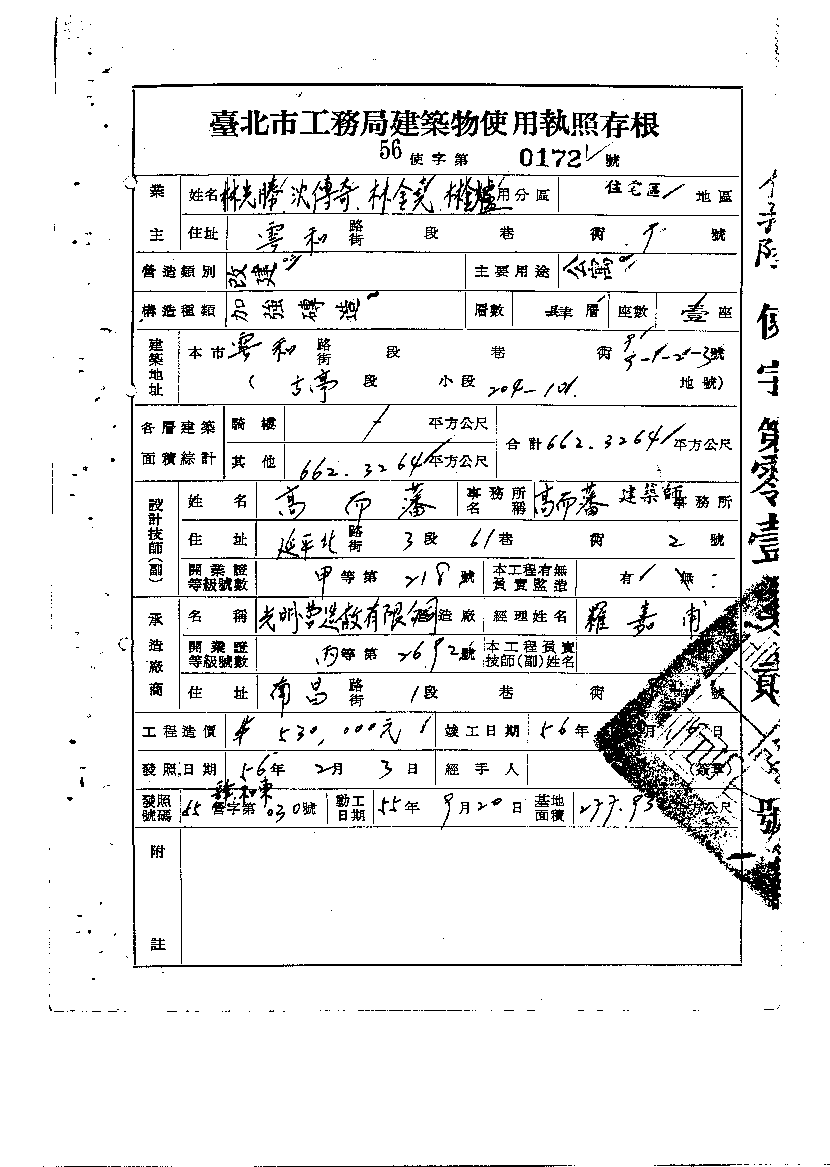 臺北市工務局建築物使用執照存根
56使字第 0172 號
業主 姓名 林金堯 用分區 住宅區 地區
住址 雲和 路街 段 巷 衖 號
營造類別 改建 主要用途 公寓
構造種類 加強磚造 層數 肆層 座數 壹座
建築地址 本市 雲和 路街 段 巷 衖 號
(古亭 段 小段 204-101 地號)
各層建築面積綜計 騎樓 / 平方公尺 合計 662.3264 平方公尺
其他 662.3264 平方公尺
設計技師(副) 姓名 高而藩 事務所名稱 高而藩建築師事務所
住址 延平北 路街 3段 61巷 衖 2號
開業證等級號數 甲等第 218 號 本工程有無負責監造 有 無
承造廠商 名稱 光明營造 有限公司 造廠 經理姓名 羅嘉甫
開業證等級號數 丙等第 2692 號 本工程負責技師(副)姓名
住址 南昌 路街 1段 巷 衖 號
工程造價 $530,000元 竣工日期 56年 月 日
發照日期 56年 2月 3日 經手人
發照號碼 55 營字第 030 號 動工日期 55年 9月 20日 基地面積 公尺
附註
使字第零壹